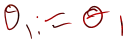 θ₁ := θ₁